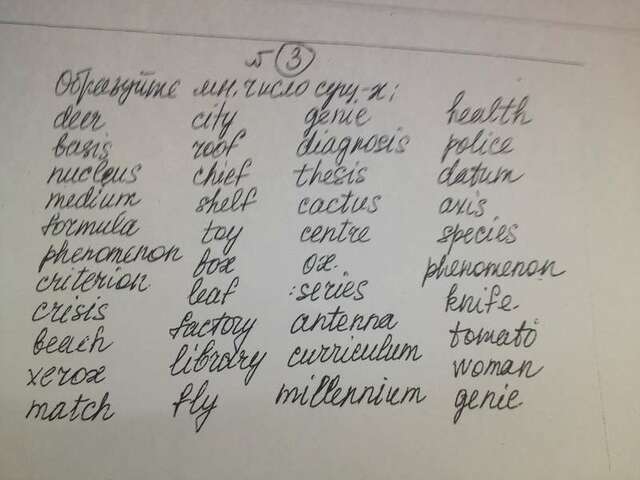 № 3
Образуйте мн. число сущ-х:
deer city genie health
basis roof diagnosis police
nucleus chief thesis datum
medium shelf cactus axis
formula toy centre species
phenomenon box ox. phenomenon
criterion leaf series knife
crisis factory antenna tomato
beach library curriculum woman
xerox fly millennium genie
match